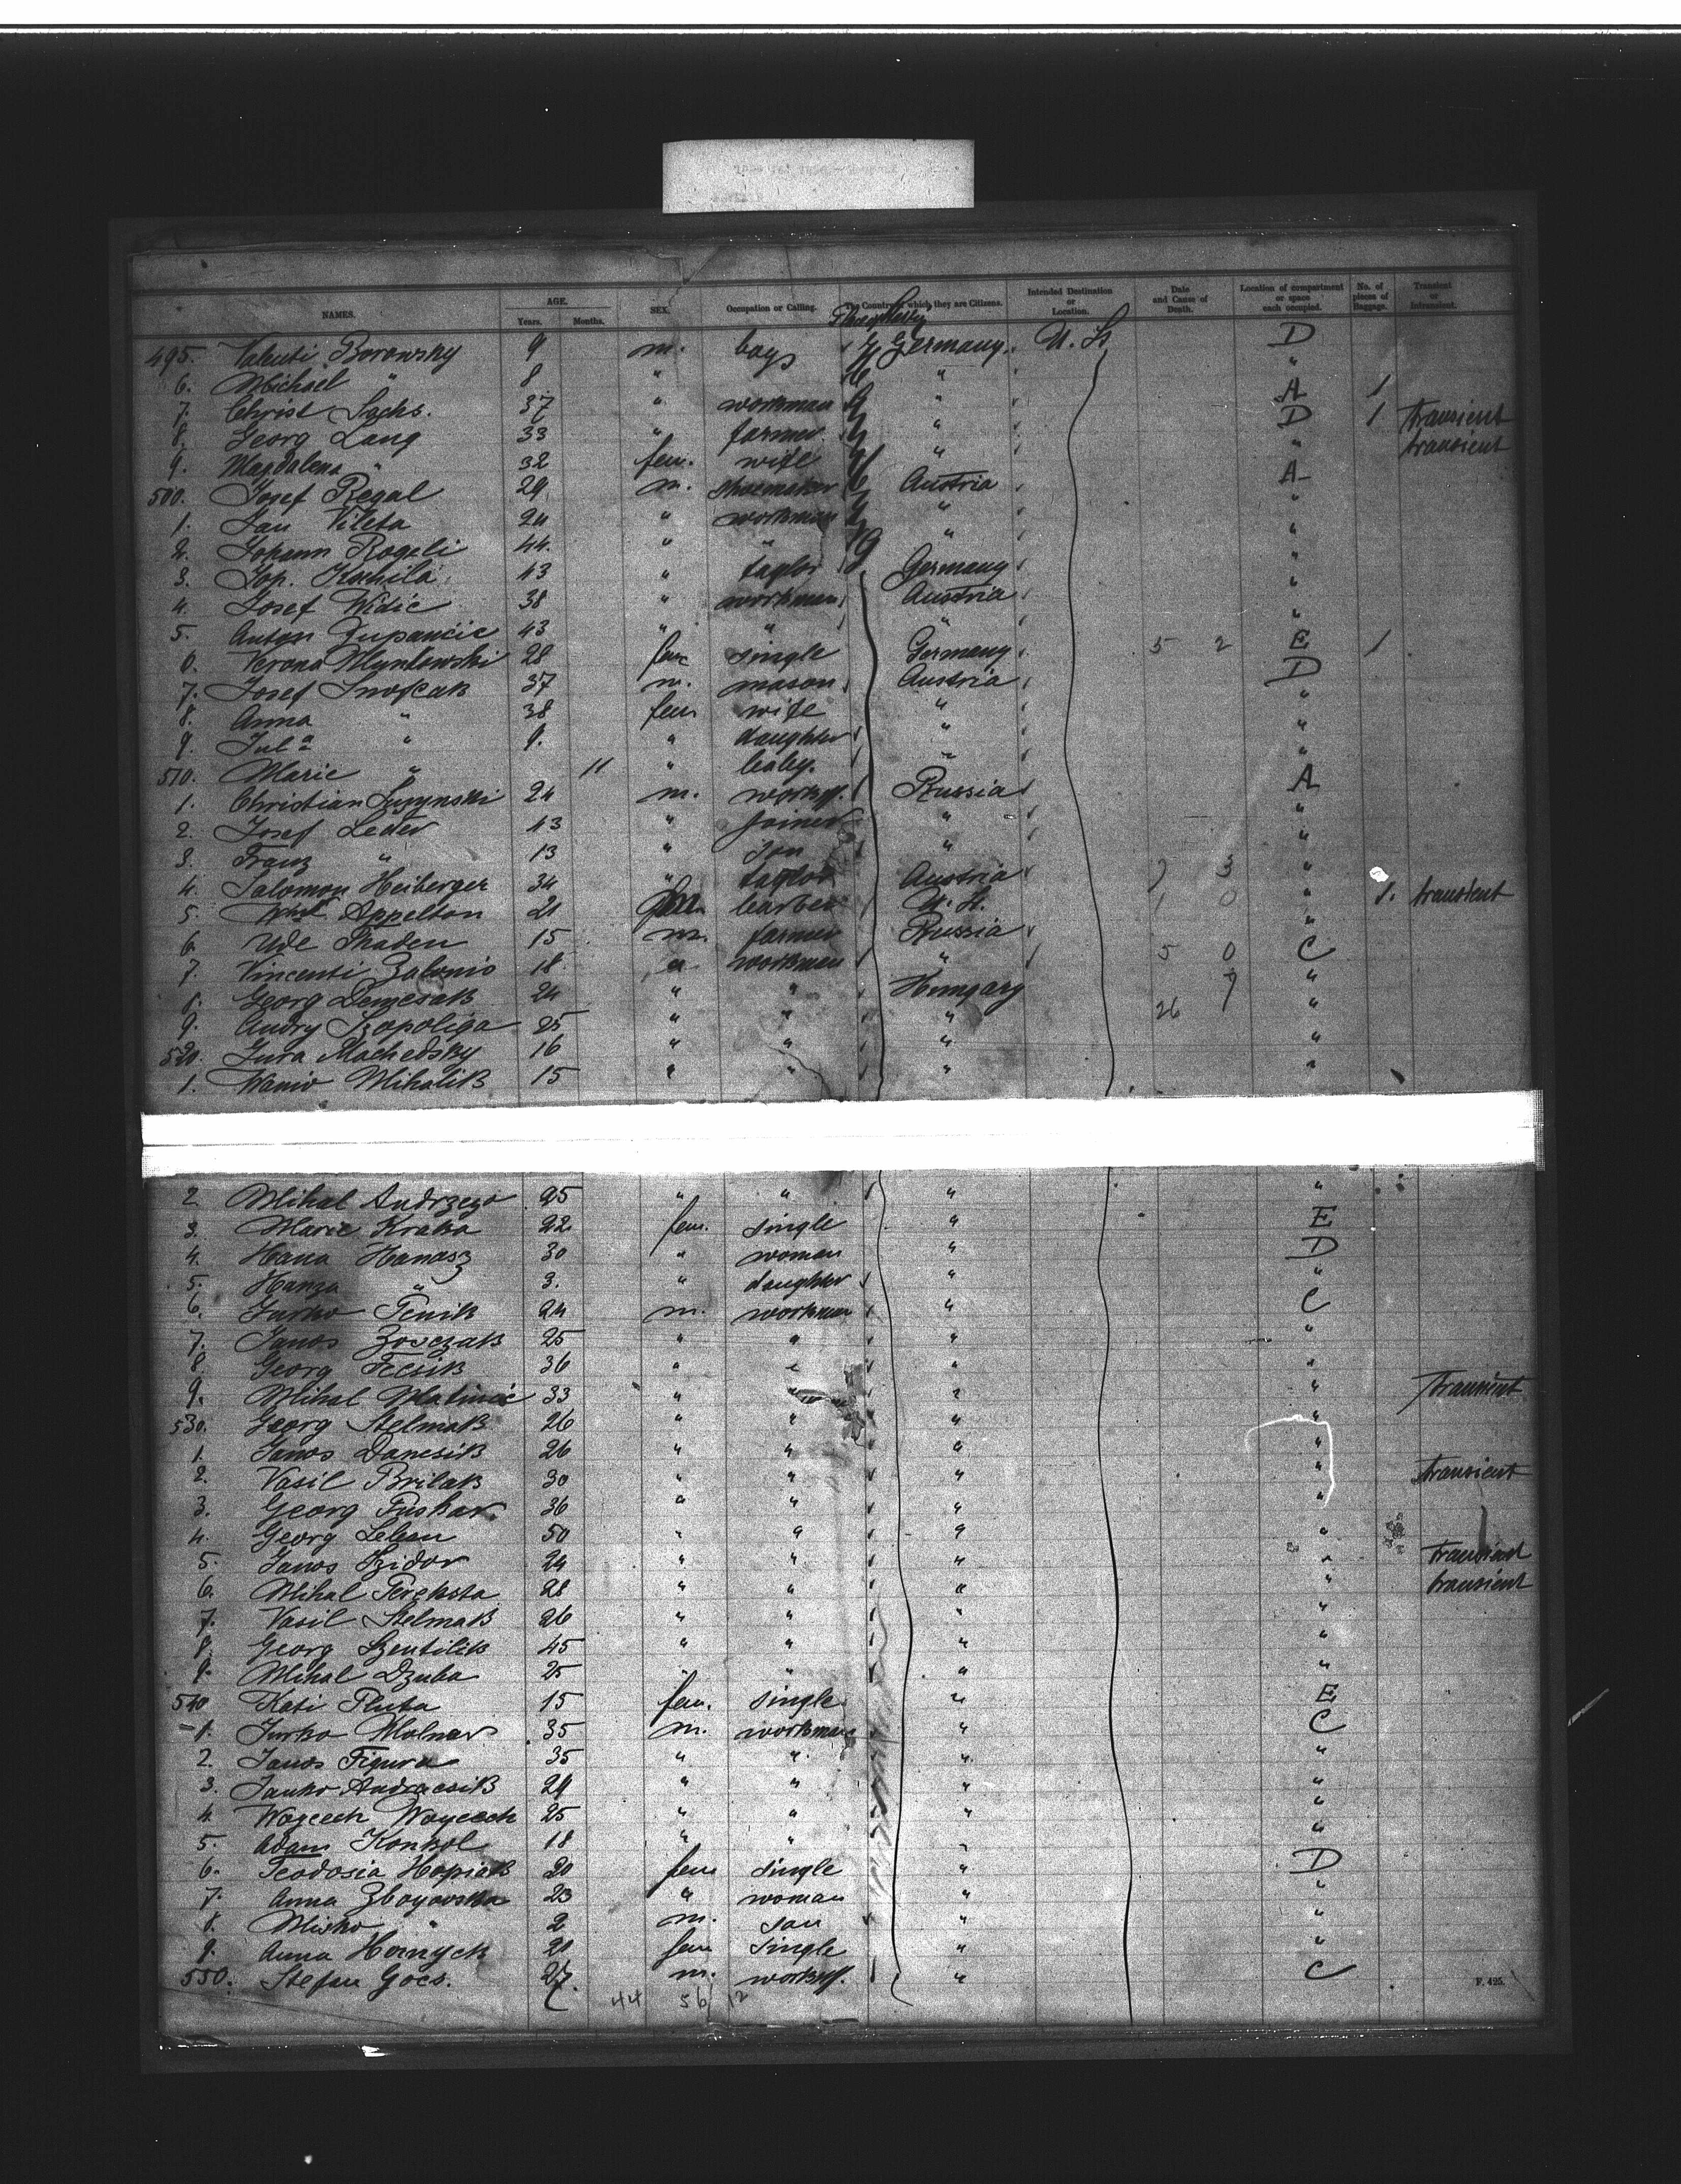 NAMES. AGE. Years. Months. SEX. Occupation or Calling. The Country of which they are Citizens. Intended Destination or Location. Date and Cause of Death. Location of compartment or space each occupied. No. of pieces of Baggage. Transient or Intransient.
495. Borowsky 9 m. boys Germany U. S. D
6. Michael " 8 " " "
7. Christ Sachs. 37 " workman " A 1
8. Georg Lang 33 " farmer " D 1 transient
9. Magdalena " 32 fem. wife " " transient
500. Josef Regal 29 m. shoemaker Austria A
1. Jan Vileta 24 " workman " "
2. Johann Rogeli 44 " " " "
3. Joh. Kochila 43 " taylor Germany "
4. Josef Widic 38 " workman Austria "
5. Anton Zupancic 43 " " " "
6. Verona Mlynkowski 28 fem single Germany 5 2 E 1
7. Josef 37 m. mason Austria D
8. Anna " 38 fem wife " "
9. Jula " 9. " daughter " "
510. Marie " 11 " baby. " "
1. Christian 24 m. workm. Russia A
2. Josef Leder 43 " joiner " "
3. Franz " 13 " son " "
4. Salomon Heiberger 34 " taylor Austria 3 "
5. Appelton 21 barber U. St. 1 0 " 1. transient
6. Ude Thaden 15 m. farmer Russia "
7. Vincenti Zalonis 18 " workman " 5 0 C
8. Georg Demcsak 24 " " Hungary 7 "
9. Andry Szopoliga 25 " " " 26 "
520. Jura Machedsky 16 " " " "
1. Wanio Mihalik 15 " " " "
2. Mihal Andrzejo 25 " " " "
3. Marie Kraka 22 fem. single " E
4. Hana Hanasz 30 " woman " D
5. Hanza " 3. " daughter " "
6. Jurko Tenik 24 m. workman " C
7. Janos Zovczak 25 " " " "
8 Georg Fecsik 36 " " " "
9. Mihal Matinic 33 " " " " transient
530. Georg Stelmak 26 " " " "
1. Janos Danesik 26 " " " "
2. Vasil Brilak 30 " " " " transient
3. Georg Fuskar 36 " " " "
4. Georg Leban 50 " " " "
5. Janos Szidor 24 " " " " transient
6. Mihal 28 " " " " transient
7. Vasil Stelmak 26 " " " "
8. Georg Szentilik 45 " " " "
9. Mihal Dzuba 25 " " " "
540 Kati Pluta 15 fem. single " E
1. Jurko Molnar 35 m. workman " C
2. Janos Figura 35 " " " "
3. Janko Andracsik 29 " " " "
4. Wojcech Woycech 25 " " " "
5. Adam Konkol 18 " " " "
6. Teodosia Hopiak 20 fem single " D
7. Anna Zboyovska 23 " woman " "
8. Misko " 2 m. son " "
9. Anna Hornyck 20 fem single " "
550. Stefan Gocs. 27. m. workm. " C
44 56 12
F. 425.